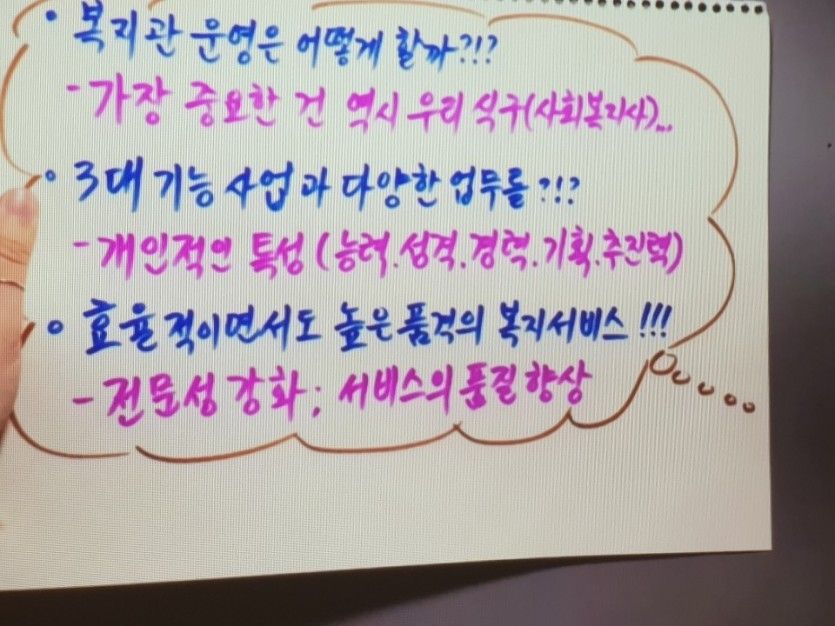 • 복지관 운영은 어떻게 할까?!?
- 가장 중요한 건 역시 우리 식구(사회복지사)...
• 3대 기능 사업과 다양한 업무를 ?!?
- 개인적인 특성 (능력.성격.경력.기획.추진력)
• 효율적이면서도 높은 품격의 복지서비스 !!!
- 전문성 강화 ; 서비스의 품질 향상